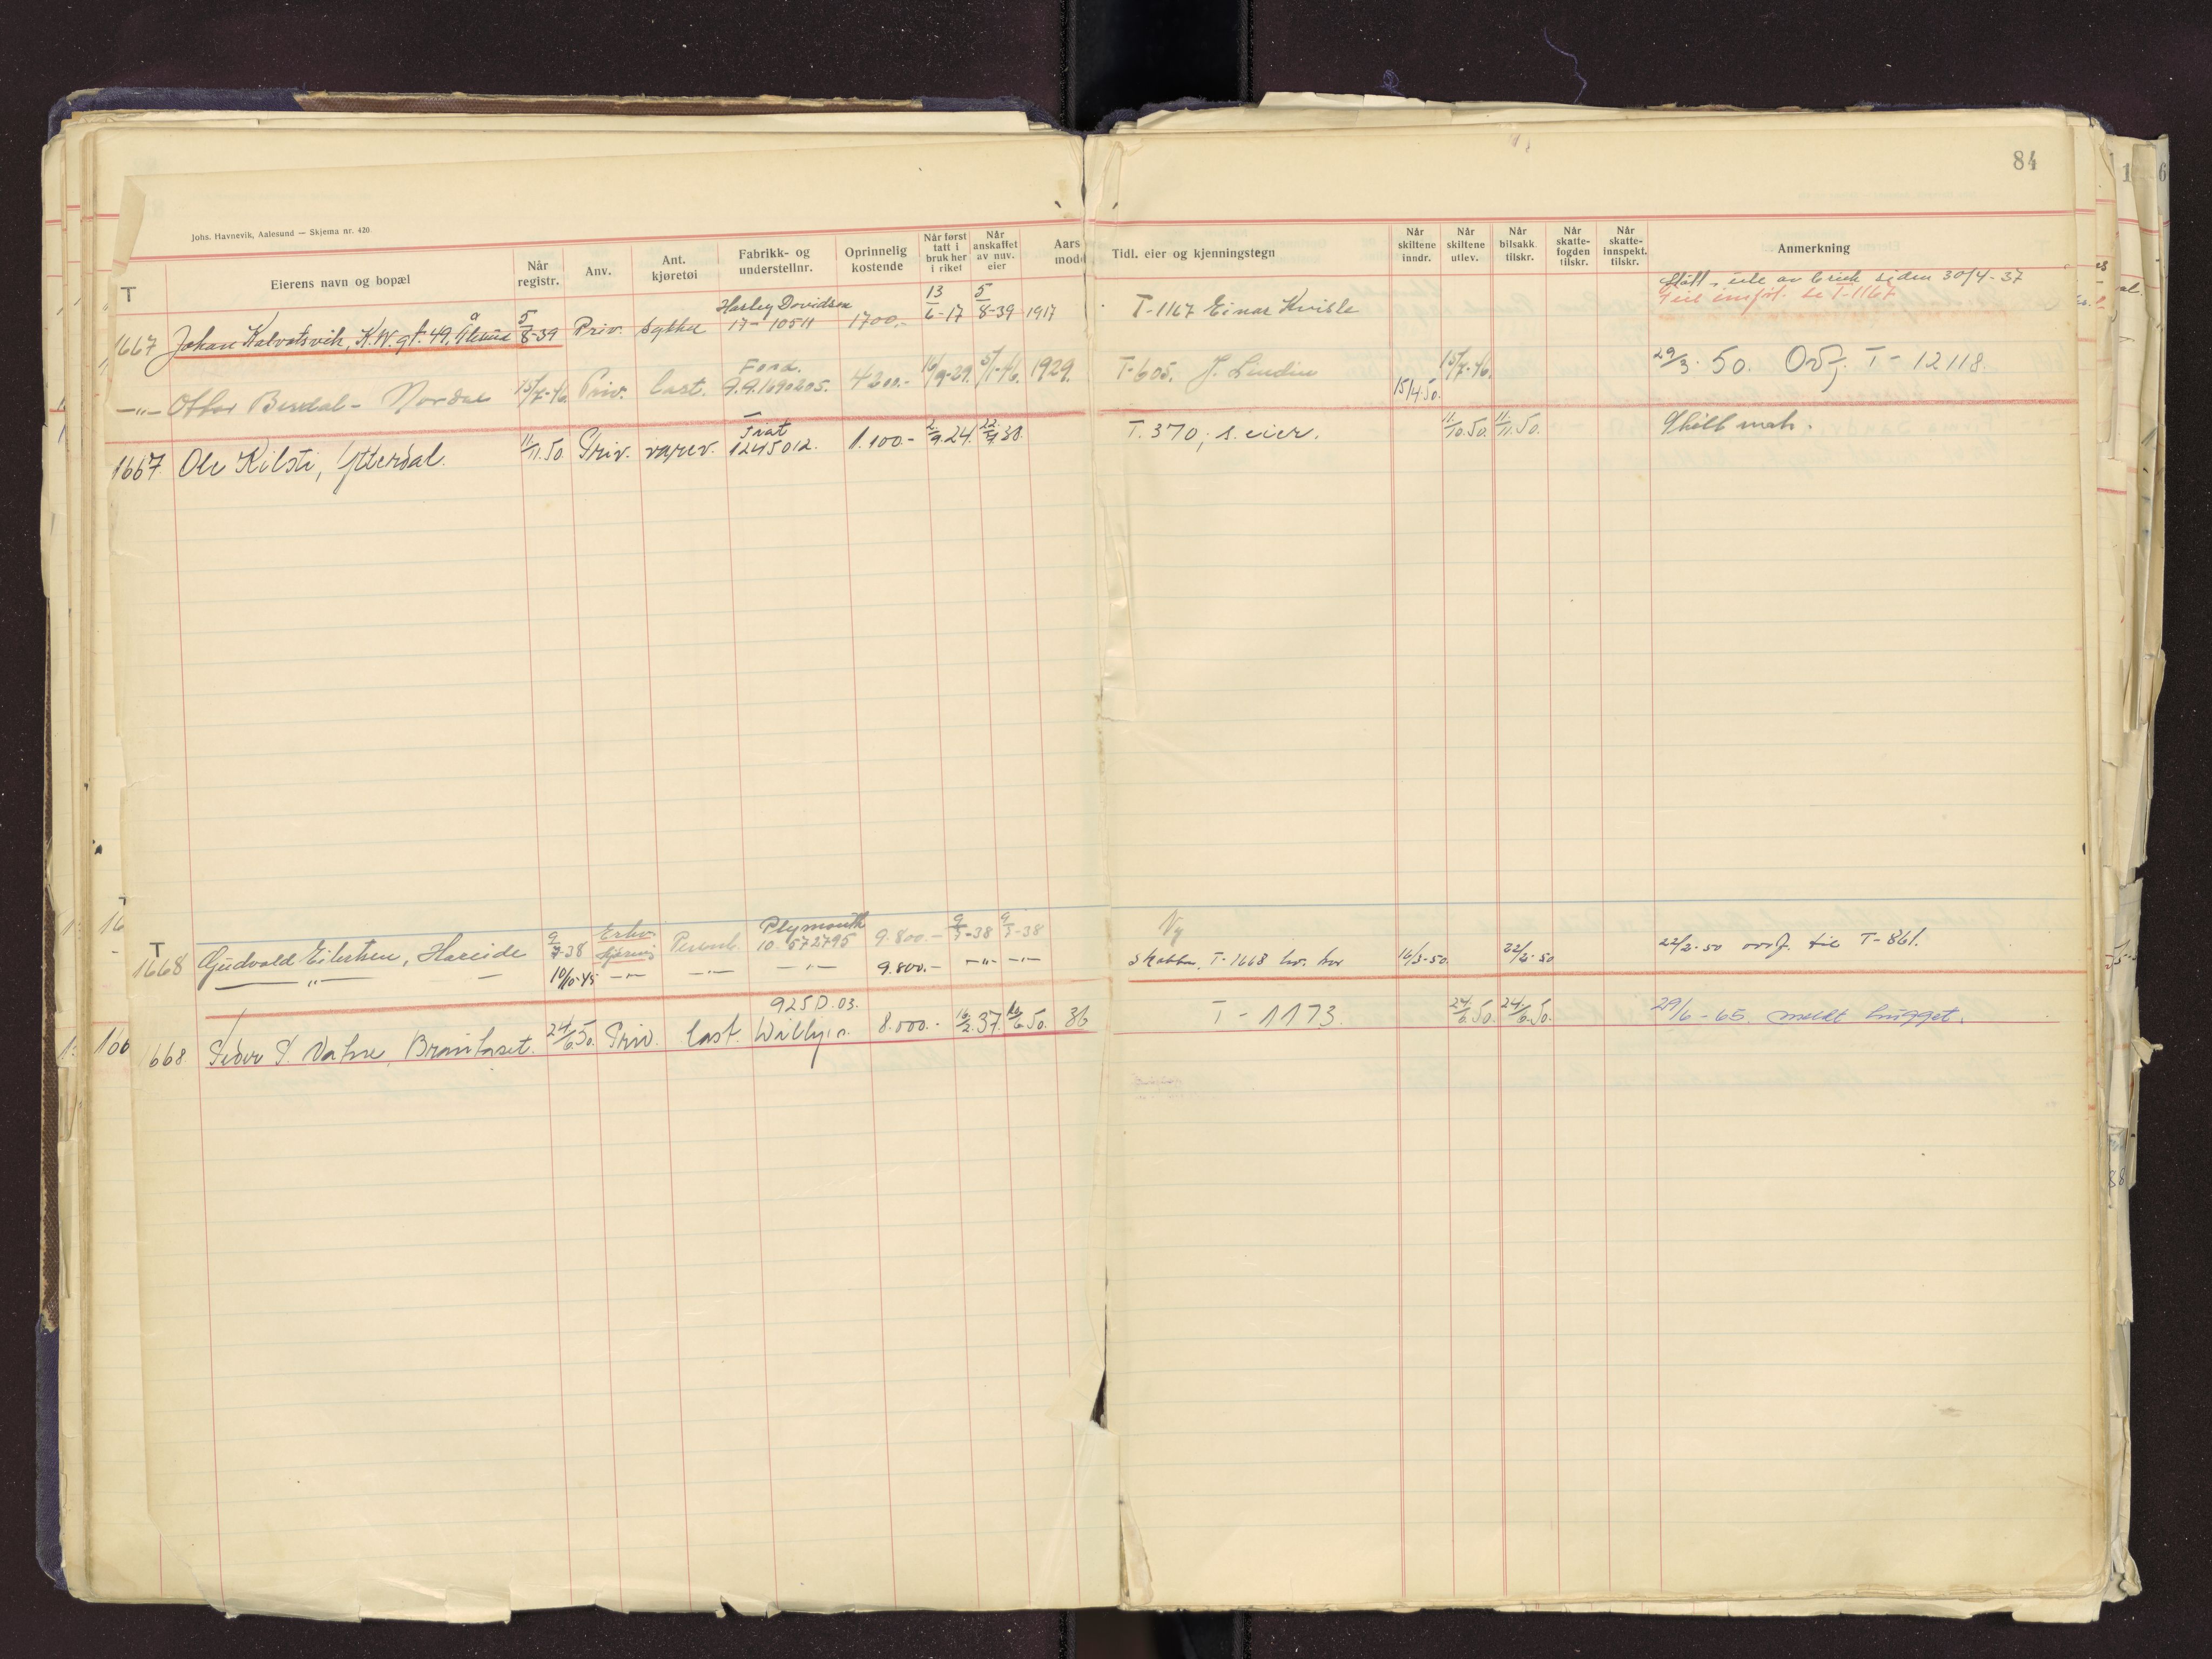 84
Johs. Havnevik, Aalesund — Skjema nr. 420
T
Eierens navn og bopæl
Når registr.
Anv.
Ant. kjøretøi
Fabrikk- og understellnr.
Oprinnelig kostende
Når først tatt i bruk her i riket
Når anskaffet av nuv. eier
Aars mod
Tidl. eier og kjenningstegn
Når skiltene inndr.
Når skiltene utlev.
Når bilsakk. tilskr.
Når skatte-fogden tilskr.
Når skatte-innspekt. tilskr.
Anmerkning
1667 Johan Kalvatsvik, K.W. gt. 49, Ålesund 5/8-39 Priv. sykkel Harley Davidson 17-10511 1700,- 13/6-17 5/8-39 1917 T-1167 Einar Kvisle siden 30/4-37
Feil innført. Se T-1167
—"— Ottar Berdal - Norddal 15/7-46 Priv. last. Ford. 4200.- 16/9-29. 5/1-46. 1929. T-605. J. Lindin 15/4.50. 15/7-46. 29/3.50. Ovf. T-12118.
1667 Ole Kilsti, Ytterdal. 11/11.50 Priv. varev. Fiat 1245012. 1.100.- 2/9.24. 22/7.38. T.370, s. eier. 11/10.50. 11/11.50. Skilt mak.
T
1668 Gudvald Eilertsen, Hareide 9/7-38 Erhv. Personb. Plymouth 10.572795 9.800.- 9/7-38 9/7-38 Ny
—"— 10/10-45 —"— —"— —"— 9.800.- —"— —"— T-1668 16/3-50. 22/2-50 22/2-50 ovf. til T-861.
668 Peder P. Vatne, Brautaset. 24/6.50. Priv. last. Willys 925D.03. 8.000.- 16/2.37. 16/6.50. 36 T-1173. 24/6.50. 24/6.50. 29/6-65. meldt hugget.